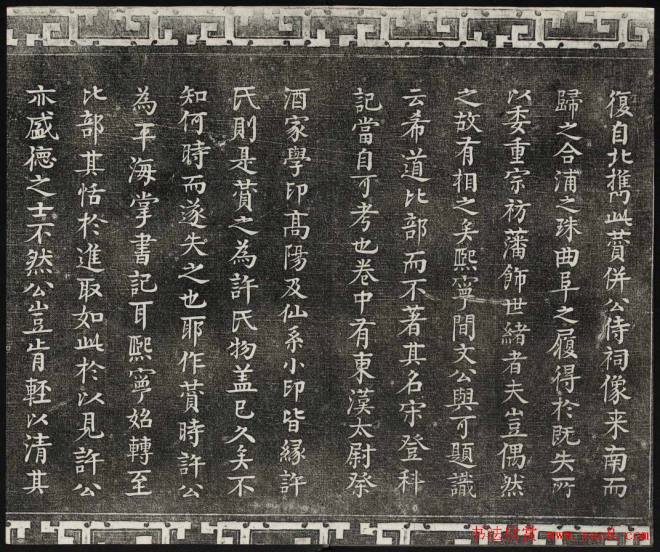 復自北携此賛併公侍祠像来南而
歸之合浦之珠曲阜之履得於既失所
以委重宗祊藩飾世緒者夫豈偶然
之故有相之矣熙寧間文公與可題識
云希道比部而不著其名宋登科
記當自可考也卷中有東漢太尉祭
酒家學印高陽及仙系小印皆縁許
氏則是賛之為許氏物盖已久矣不
知何時而遂失之也耶作賛時許公
為平海掌書記耳熙寧始轉至
比部其恬於進取如此於以見許公
亦盛德之士不然公豈肯輕以清其
书法欣赏 www.yac8.com